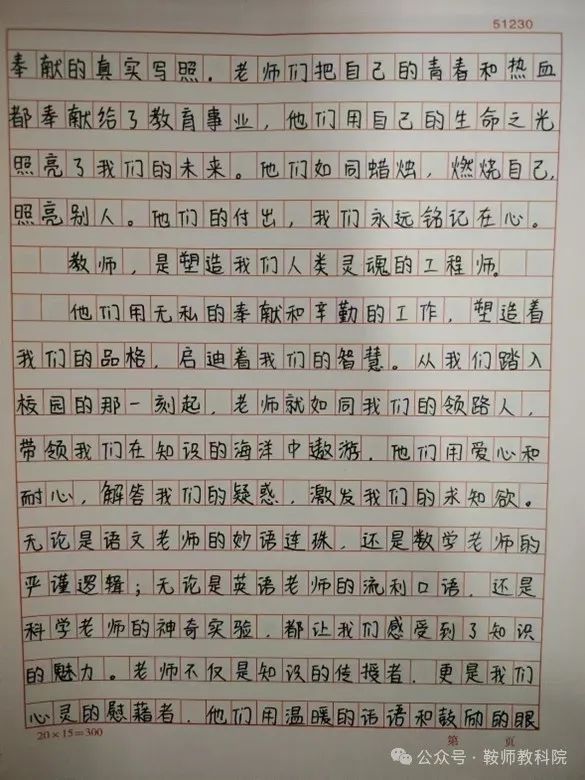 51230
奉献的真实写照。老师们把自己的青春和热血
都奉献给了教育事业，他们用自己的生命之光
照亮了我们的未来。他们如同蜡烛，燃烧自己，
照亮别人。他们的付出，我们永远铭记在心。
教师，是塑造我们人类灵魂的工程师。
他们用无私的奉献和辛勤的工作，塑造着
我们的品格，启迪着我们的智慧。从我们踏入
校园的那一刻起，老师就如同我们的领路人，
带领我们在知识的海洋中遨游。他们用爱心和
耐心，解答我们的疑惑，激发我们的求知欲。
无论是语文老师的妙语连珠，还是数学老师的
严谨逻辑；无论是英语老师的流利口语，还是
科学老师的神奇实验，都让我们感受到了知识
的魅力。老师不仅是知识的传授者，更是我们
心灵的慰藉者，他们用温暖的话语和鼓励的眼
20×15=300
第 页
公众号·鞍师教科院